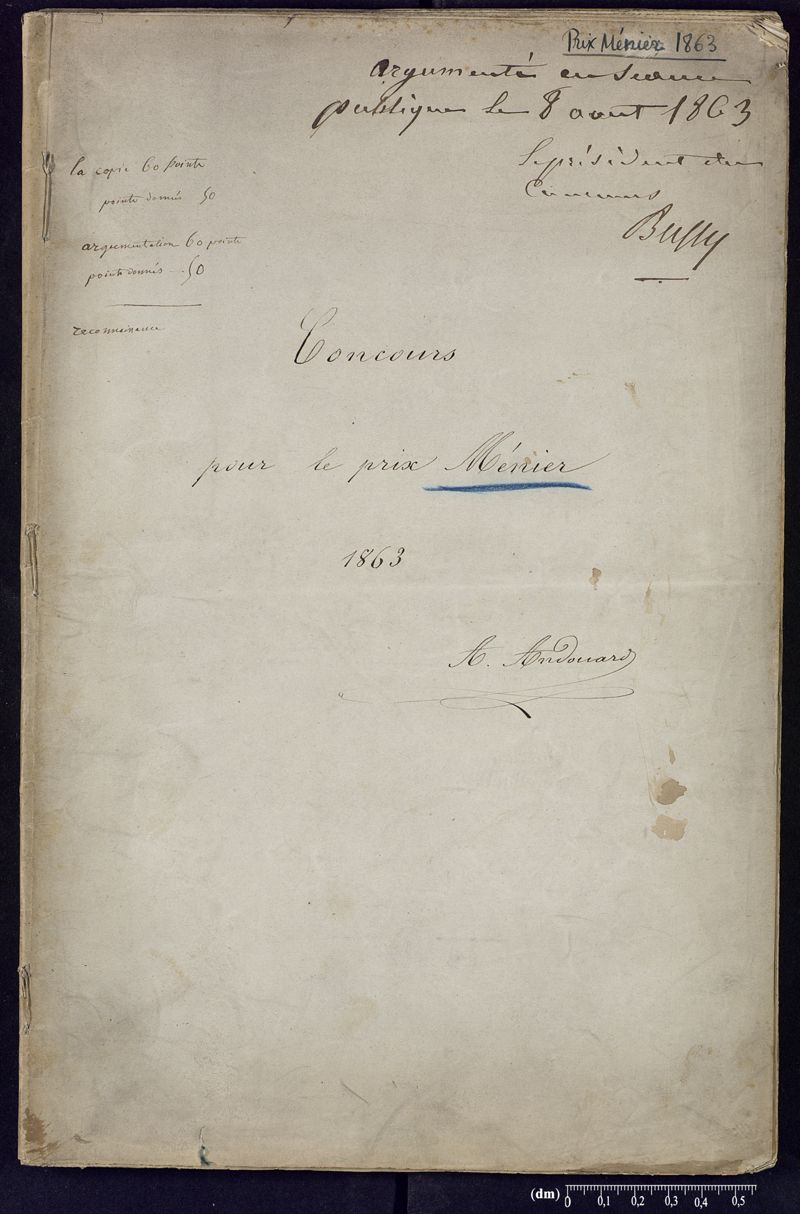 Prix Ménier 1863
argumenté en séance
publique le 8 aout 1863
Le président du
Concours
Bussy
la copie 60 points
points donnés 50
argumentation 60 points
points donnés - 50
reconnaissance
Concours
pour le prix Ménier
1863
A. Andouard
(dm) 0 0,1 0,2 0,3 0,4 0,5